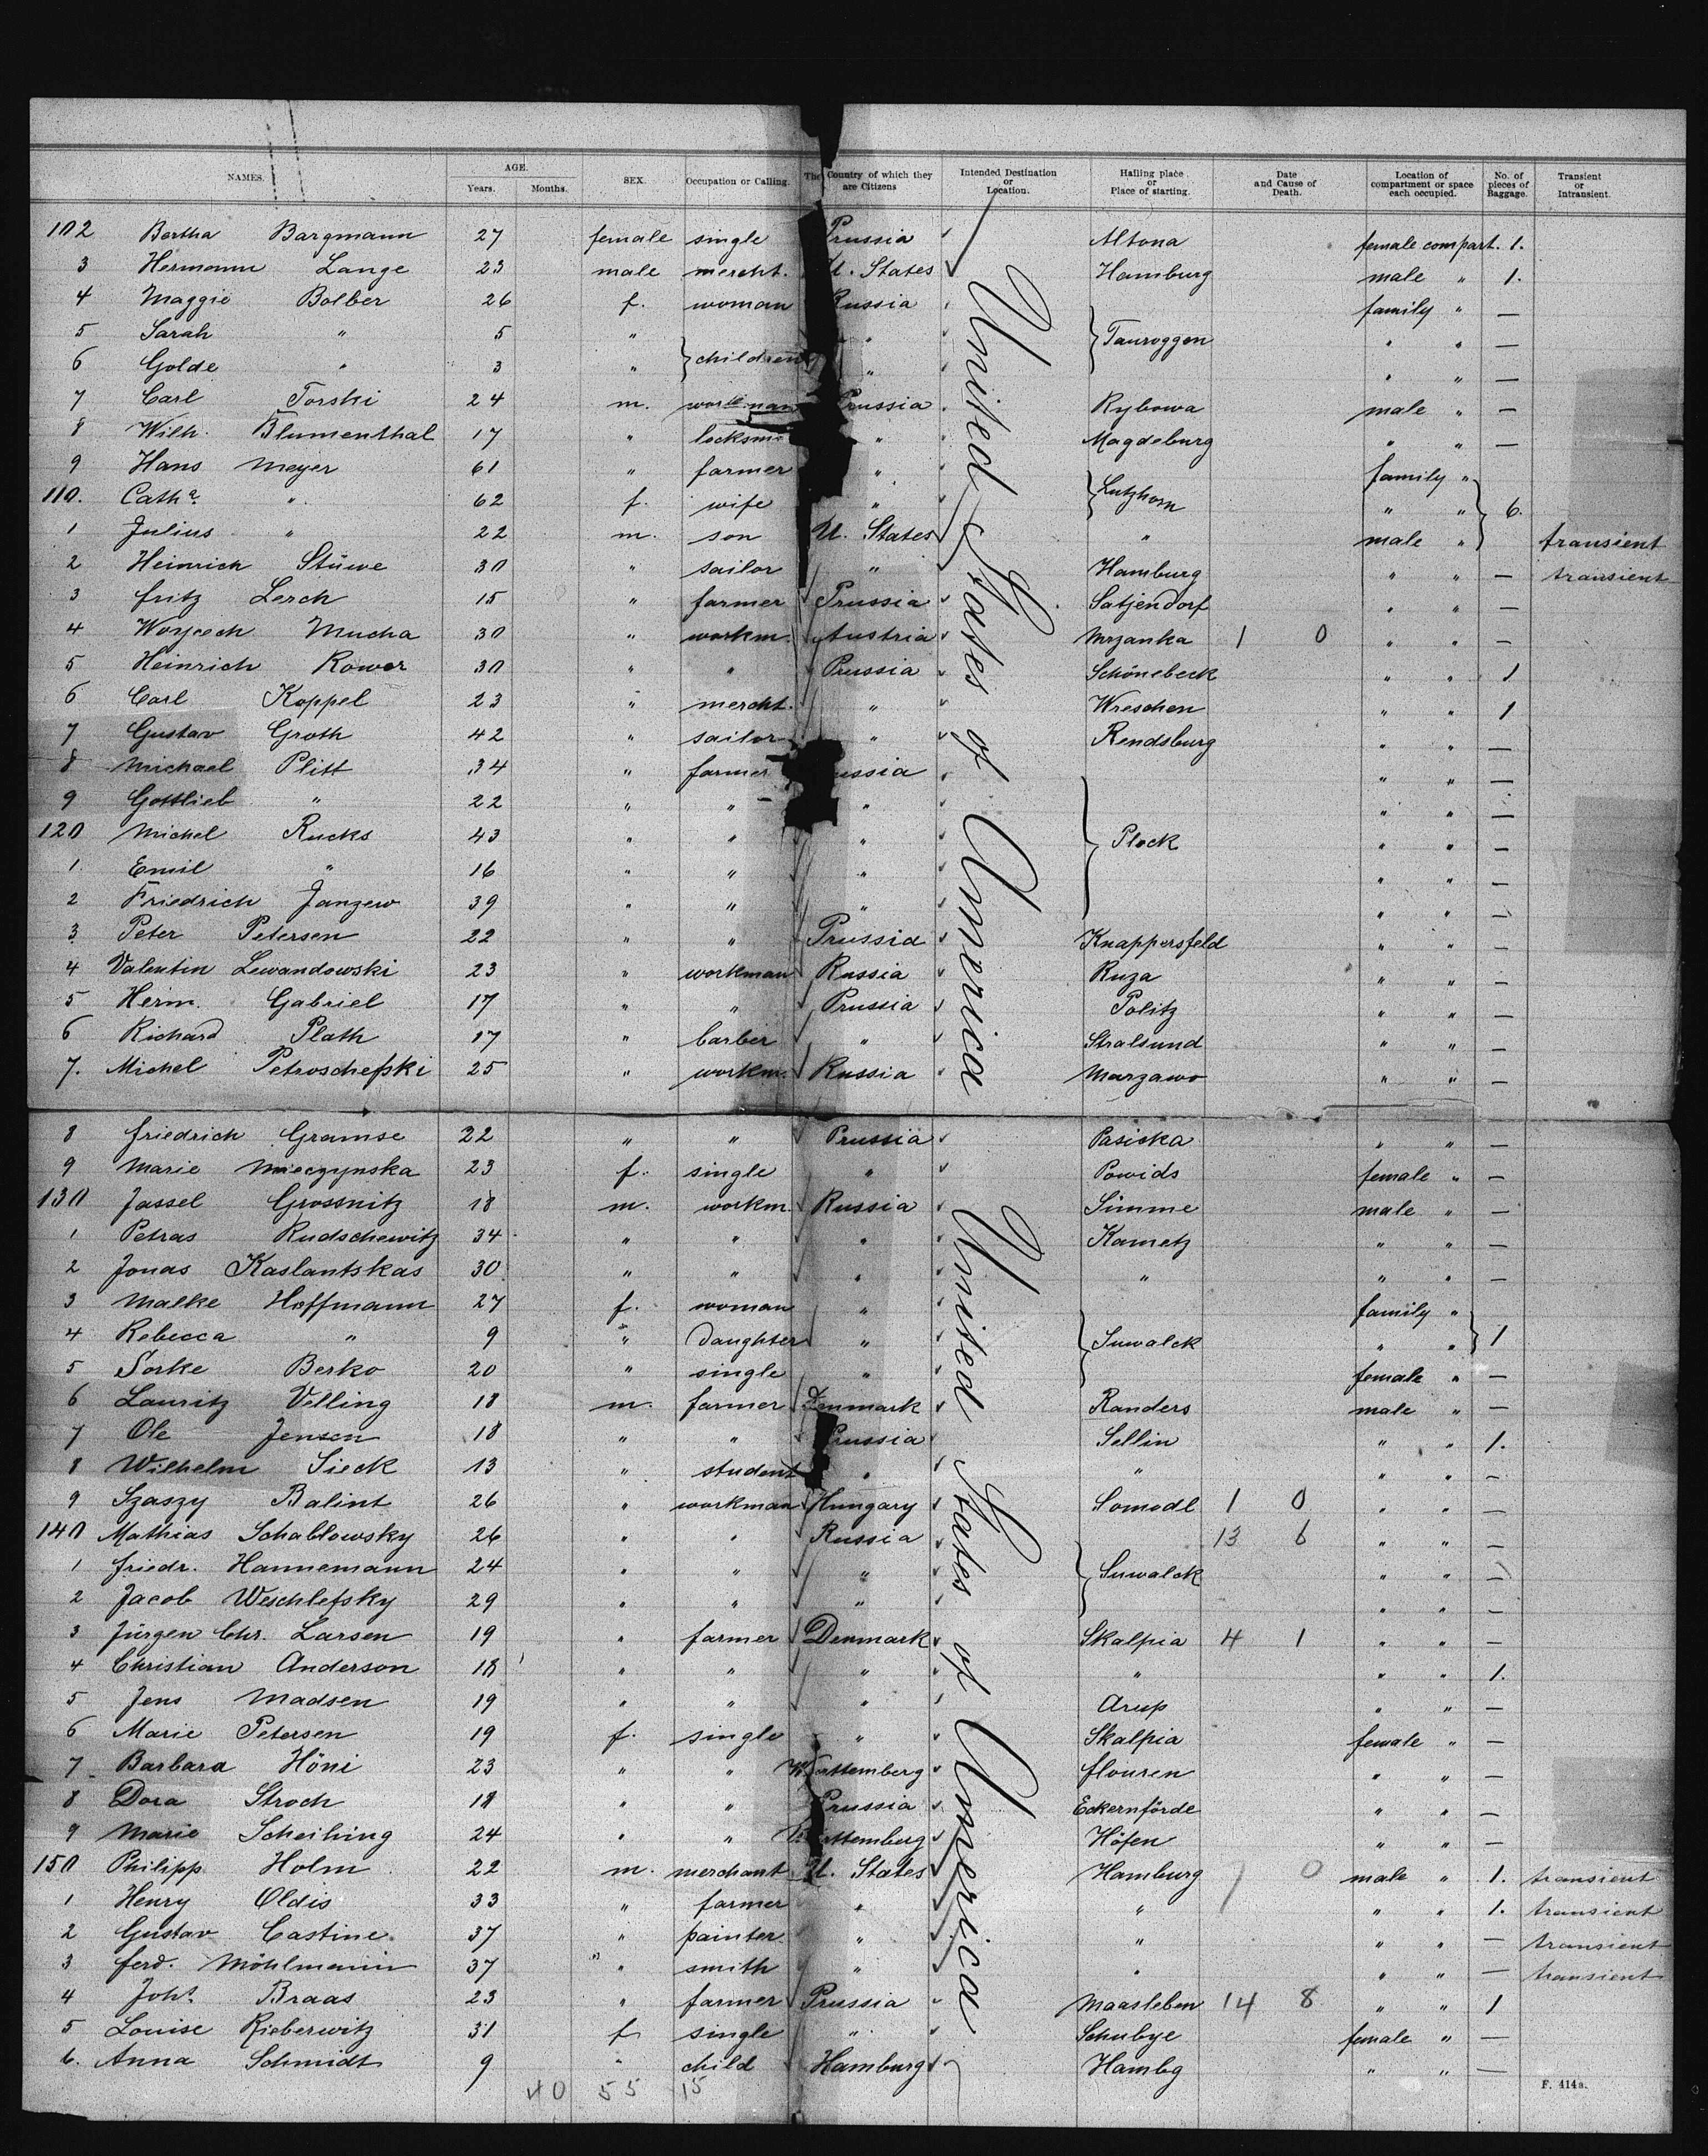 NAMES. AGE. Years. Months. SEX. Occupation or Calling. The Country of which they are Citizens Intended Destination or Location. Hailing place or Place of starting. Date and Cause of Death. Location of compartment or space each occupied. No. of pieces of Baggage. Transient or Intransient.
United States of America
102 Bertha Bargmann 27 female single Prussia Altona female compart. 1.
3 Hermann Lange 23 male mercht. U. States Hamburg male " 1.
4 Maggie Bolber 26 f. woman Russia family " —
5 Sarah " 5 " children " Tauroggen " " —
6 Golde " 3 " " " " —
7 Carl Torski 24 m. workman Prussia Rybowa male " —
8 Wilh. Blumenthal 17 " locksm. " Magdeburg " " —
9 Hans Meyer 61 " farmer " Lutzhorn family "
110. Catha. " 62 f. wife " " " 6.
1 Julius " 22 m. son U. States " male " transient
2 Heinrich Stüwe 30 " sailor " Hamburg " " — transient
3 Fritz Lerch 15 " farmer Prussia Satjendorf " " —
4 Woycech Mucha 30 " workm. Austria Mrzanka 1 0 " " —
5 Heinrich Rower 30 " " Prussia Schönebeck " " 1
6 Carl Koppel 23 " mercht. " Wreschen " " 1
7 Gustav Groth 42 " sailor " Rendsburg " " —
8 Michael Plitt 34 " farmer Russia " " —
9 Gottlieb " 22 " " " " " —
120 Michel Rucks 43 " " " Plock " " —
1. Emil " 16 " " " " " —
2 Friedrich Janzew 39 " " " " " —
3. Peter Petersen 22 " " Prussia Knappersfeld " " —
4 Valentin Lewandowski 23 " workman Russia Ruza " " —
5 Herm. Gabriel 17 " " Prussia Politz " " —
6 Richard Plath 17 " barber " Stralsund " " —
7. Michel Petroschefski 25 " workm. Russia Marzawo " " —
8 Friedrich Gramse 22 " " Prussia Pasicka " " —
9 Marie Mieczynska 23 f. single " Powids female " —
130 Jassel Grossnitz 18 m. workm. Russia Simme male " —
1 Petras Rudschewitz 34 " " " Kametz " " —
2 Jonas Kaslantskas 30 " " " " " " —
3 Malke Hoffmann 27 f. woman " family "
4 Rebecca " 9 " daughter " Suwalck " " 1
5 Sorke Berko 20 " single " female " —
6 Lauritz Velling 18 m. farmer Denmark Randers male " —
7 Ole Jensen 18 " " Prussia Sellin " " 1.
8 Wilhelm Sieck 13 " student " " " " —
9 Szaszy Balint 26 " workman Hungary Somodl 1 0 " " —
140 Mathias Schablowsky 26 " " Russia 13 6 " " —
1 Friedr. Hannemann 24 " " " Suwalck " " —
2 Jacob Weschlefsky 29 " " " " " —
3 Jürgen Chr. Larsen 19 " farmer Denmark Skalpia 4 1 " " —
4 Christian Anderson 18 " " " " " " 1.
5 Jens Madsen 19 " " " Arup " " —
6 Marie Petersen 19 f. single " Skalpia female " —
7 Barbara Höni 23 " " Württemberg flouren " " —
8 Dora Stroch 18 " " Prussia Eckernförde " " —
9 Marie Scheihing 24 " " Württemberg Höfen " " —
150 Philipp Holm 22 m. merchant U. States Hamburg 1 0 male " 1. transient
1 Henry Oldis 33 " farmer " " " " 1. transient
2 Gustav Castine 37 " painter " " " " — transient
3 Ferd. Möhlmann 37 " smith " " " " — transient
4 Johs. Braas 23 " farmer Prussia Maasleben 14 8 " " 1
5 Louise Rieberwitz 31 f. single " Schubye female " —
6. Anna Schmidt 9 " child Hamburg Hambg " " —
United States of America
40 55 15
F. 414a.